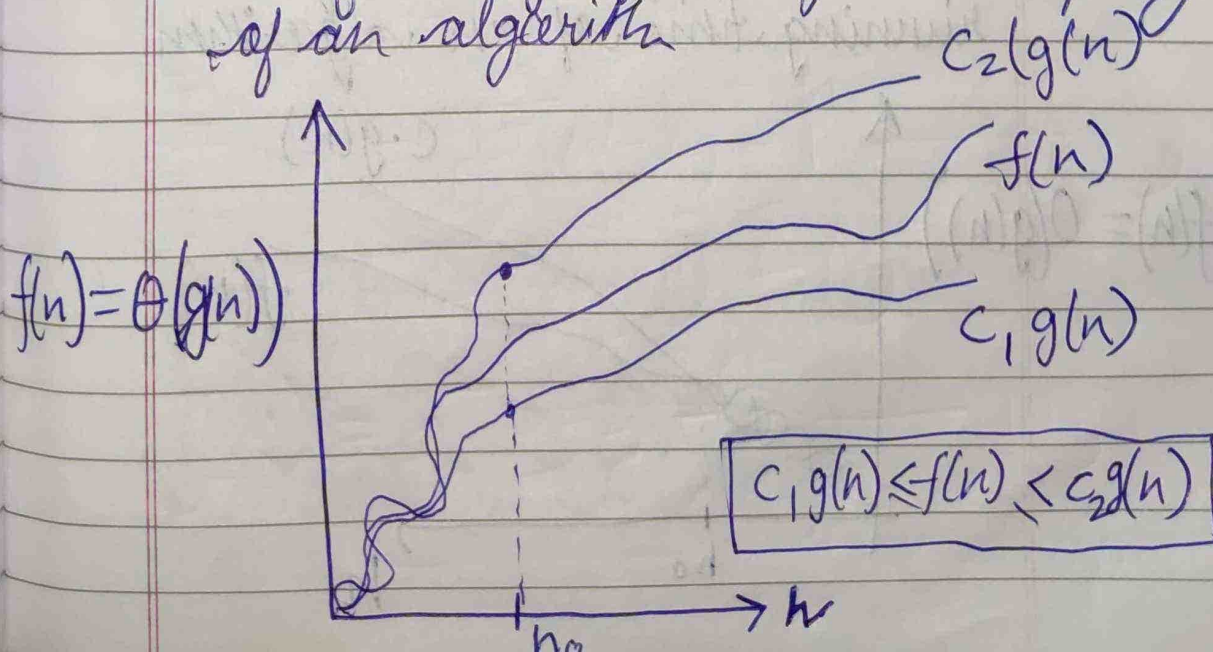 of an algoerith
C₂(g(n)
f(n)
f(n)=θ(g(n))
C₁g(n)
C₁g(n)≤f(n)<C₂g(n)
n
n₀